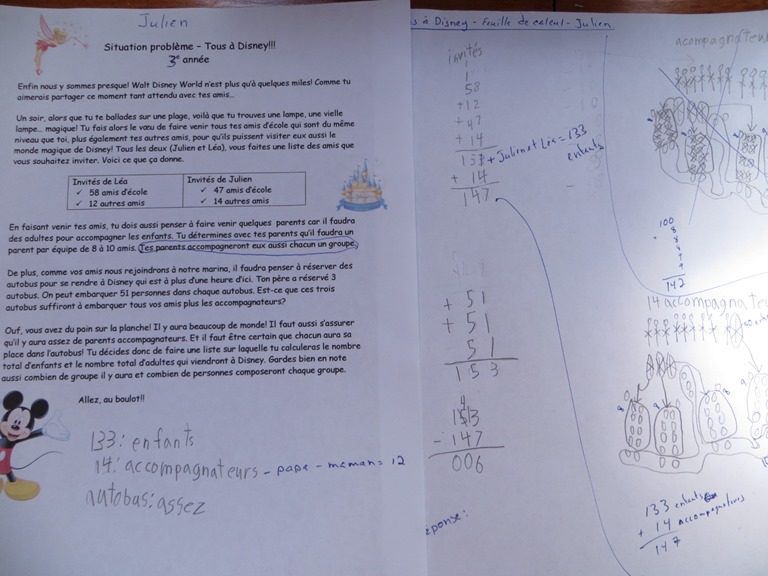 Julien
Situation problème - Tous à Disney!!!
3e année
Enfin nous y sommes presque! Walt Disney World n'est plus qu'à quelques miles! Comme tu
aimerais partager ce moment tant attendu avec tes amis...
Un soir, alors que tu te ballades sur une plage, voilà que tu trouves une lampe, une vielle
lampe... magique! Tu fais alors le vœu de faire venir tous tes amis d'école qui sont du même
niveau que toi, plus également tes autres amis, pour qu'ils puissent visiter eux aussi le
monde magique de Disney! Tous les deux (Julien et Léa), vous faites une liste des amis que
vous souhaitez inviter. Voici ce que ça donne.
Invités de Léa
✓ 58 amis d'école
✓ 12 autres amis
Invités de Julien
✓ 47 amis d'école
✓ 14 autres amis
En faisant venir tes amis, tu dois aussi penser à faire venir quelques parents car il faudra
des adultes pour accompagner les enfants. Tu détermines avec tes parents qu'il faudra un
parent par équipe de 8 à 10 amis. Tes parents accompagneront eux aussi chacun un groupe.
De plus, comme vos amis nous rejoindrons à notre marina, il faudra penser à réserver des
autobus pour se rendre à Disney qui est à plus d'une heure d'ici. Ton père a réservé 3
autobus. On peut embarquer 51 personnes dans chaque autobus. Est-ce que ces trois
autobus suffiront à embarquer tous vos amis plus les accompagnateurs?
Ouf, vous avez du pain sur la planche! Il y aura beaucoup de monde! Il faut aussi s'assurer
qu'il y aura assez de parents accompagneurs. Et il faut être certain que chacun aura sa
place dans l'autobus! Tu décides donc de faire une liste sur laquelle tu calculeras le nombre
total d'enfants et le nombre total d'adultes qui viendront à Disney. Gardes bien en note
aussi combien de groupe il y aura et combien de personnes composeront chaque groupe.
Allez, au boulot!!
133: enfants
14: accompagnateurs - papa - maman = 12
autobus: assez
à Disney - Feuille de calcul - Julien
invités
1
58
+12
+47
+14
133 + Julien et Léa = 133
enfants
+ 14
147
+ 51
+ 51
51
153
4
153
- 147
006
éponse:
acompagnateu
100
8
147
14 accompagnateu
133 enfants
+ 14 accompagnateurs
147